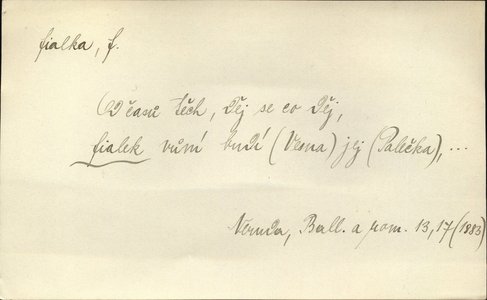 fialka, f.
Od časů těch, děj se co děj,
fialek vůní budí (Vesna) jej (Palečka), ...
Neruda, Ball. a rom. 13,17 (1883)